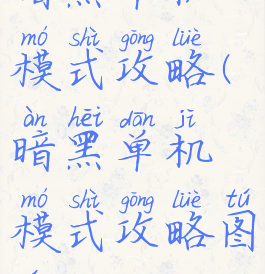 mó shì gōng lüè
模式攻略(
àn hēi dān jī
暗黑单机
mó shì gōng lüè tú
模式攻略图